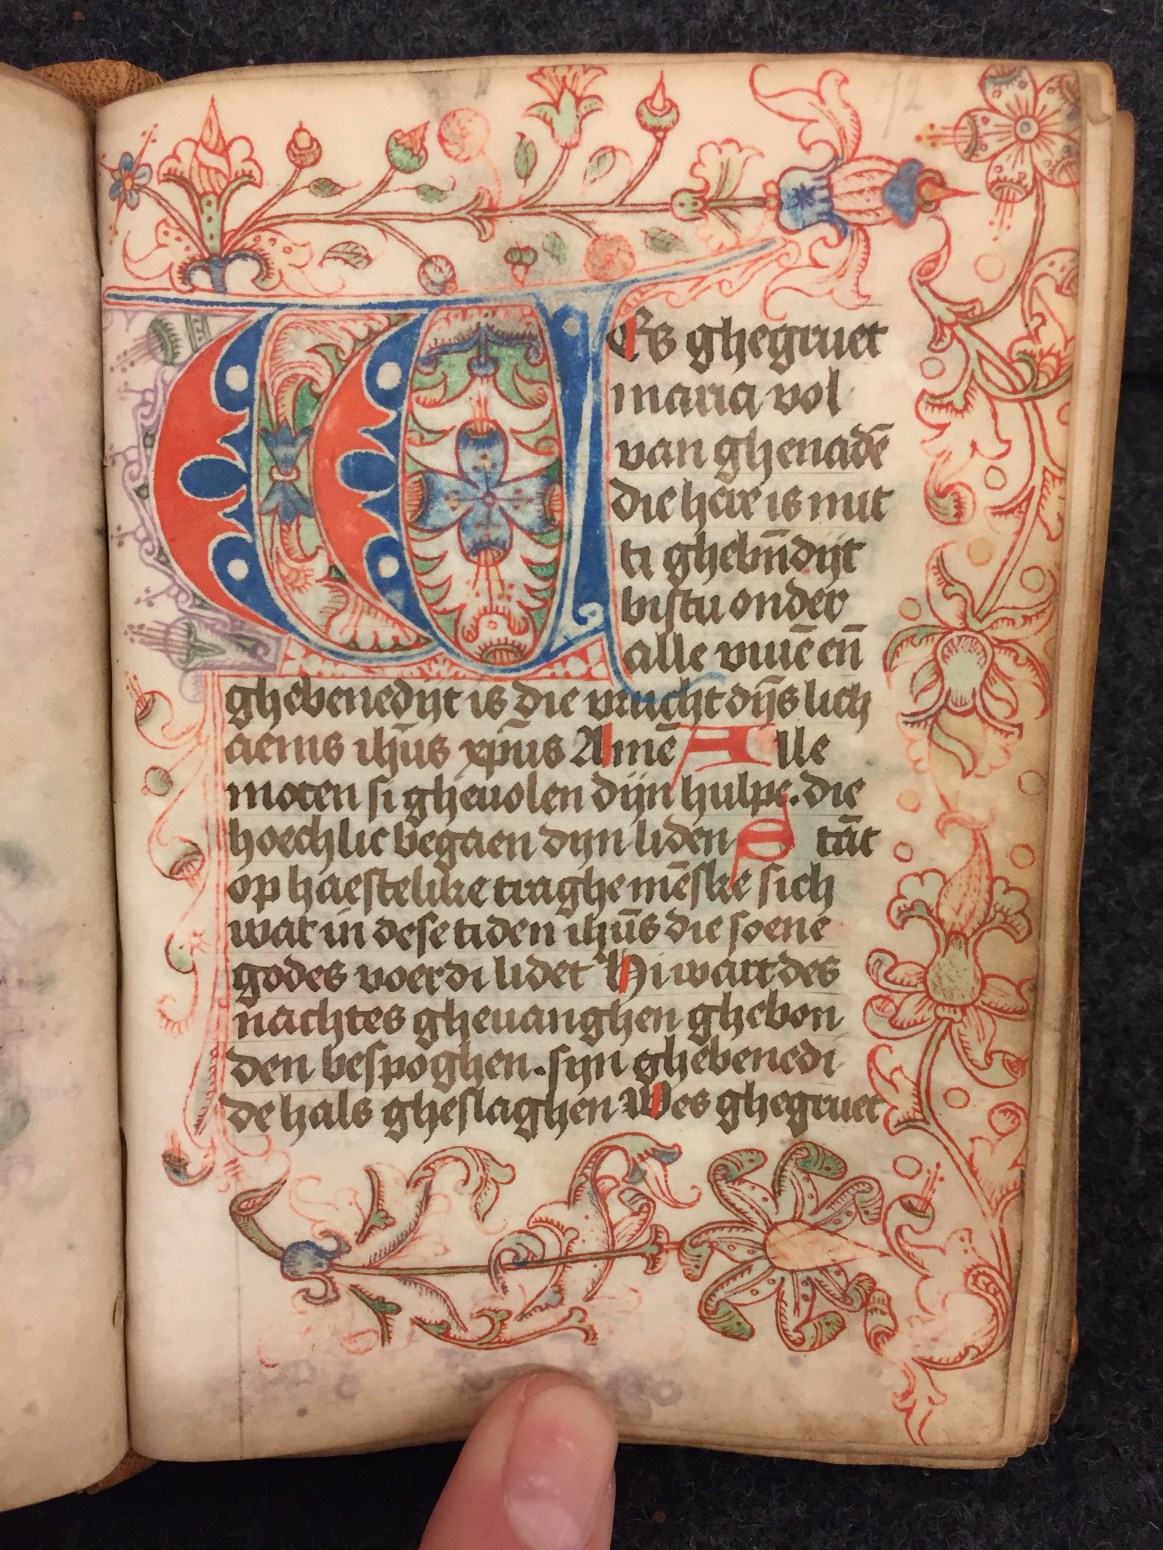 72
WEs ghegruet
maria vol
van ghenadē
die here is mit
ti ghebn̄dijt
bistu onder
alle vuiē en̄
ghebenedijt is die vrucht dijs̄ lich
aems ih̄us xp̄us Amē Alle
moten si gheuolen dijn hulpe. die
hoechlic begaen dijn liden Stāt
op haestelike traghe mēske sich
wat in dese tiden ihūs die soene
godes voer di lidet Hi wart des
nachtes gheuanghen ghebon
den bespoghen. sijn ghebenedi
de hals gheslaghen Wes ghegruet